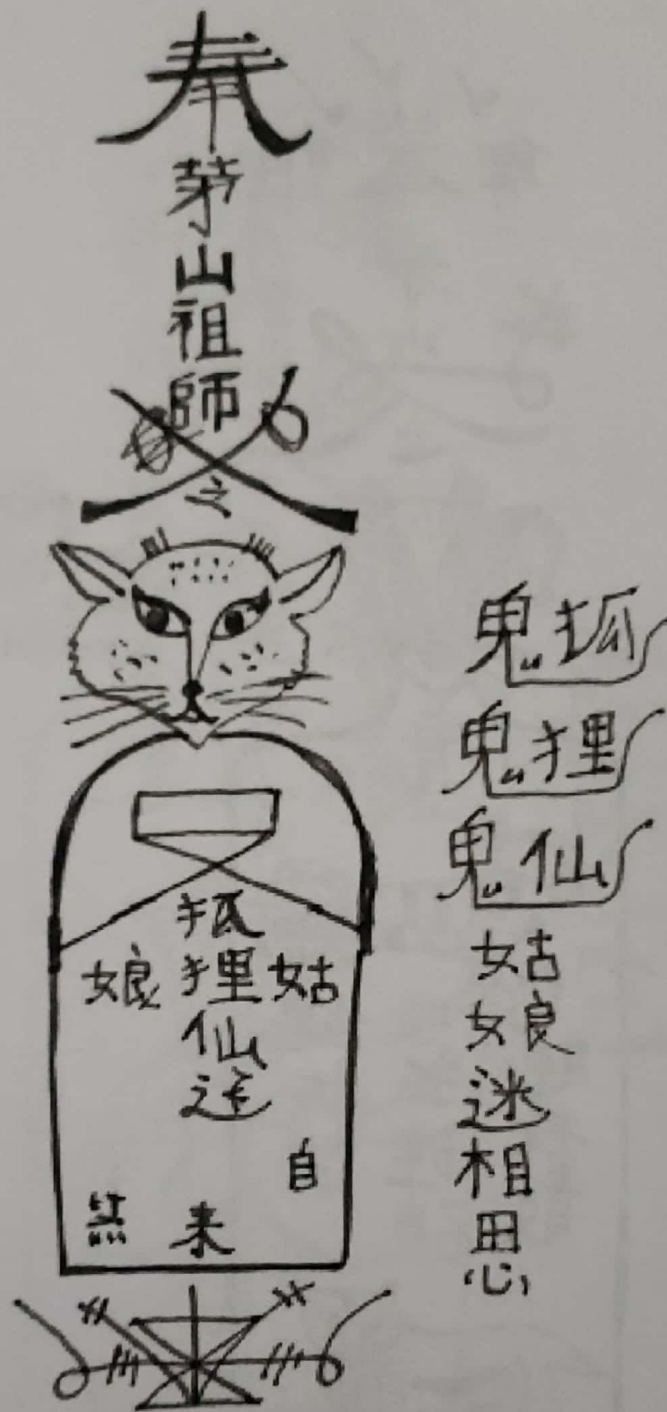 奉茅山祖師之
狐狸仙
姑娘
自来
鬼狐
鬼狸
鬼仙
姑娘迷相思